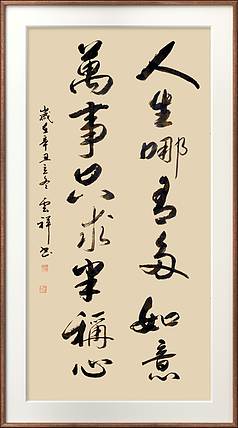 人生哪有多如意
萬事只求半稱心
歲在辛丑立冬雲祥書